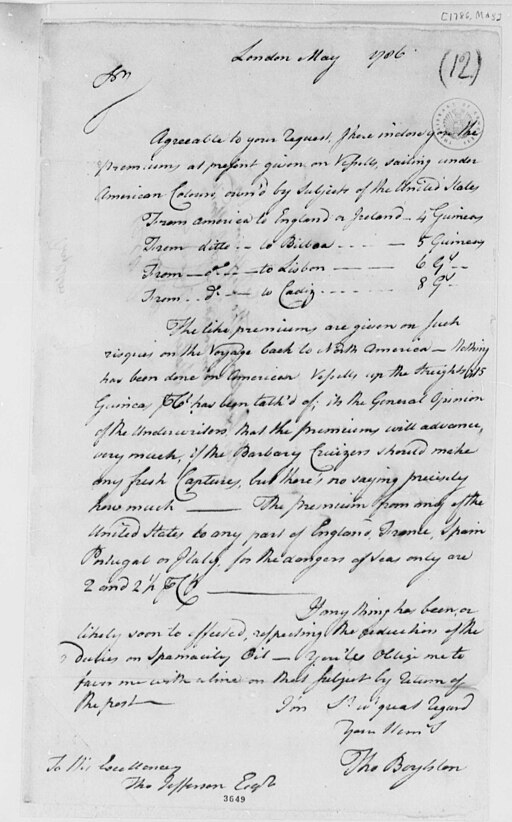 [1786, May]
London May 1786
(12)
Sir
Agreeable to your request, I here inclose you the
premiums at present given on Vessells, sailing under
American Colours own'd by Subjects of the United States
From America to England or Ireland - 4 Guineas
From ditto - to Bilboa - - - - 5 Guineas
From - do - to Lisbon - - - 6 Gs
From - do - to Cadiz - - - - 8 Gs
The like premiums are given on such
risques on the Voyage back to North America - Nothing
has been done on American Vessells up the Streights, 15
Guineas PCt has been talk'd of; its the General Opinion
of the Underwriters that the premiums will advance,
very much, if the Barbary Cruizers should make
any fresh Captures, but there's no saying precisely
how much — The premium from any of the
United States to any part of England, France, Spain
Portugal or Italy, for the dangers of Seas only are
2 and 2½ PCt —
If any thing has been, or
likely soon to effected, respecting the reduction of the
Duties on Spamacity Oil - You'll Oblige me to
favor me with a line on that Subject by return of
the post —
I am Sr wt great regard
Your Hume S
Tho Boylston
To His Excellency
Tho Jefferson Esqr
3649